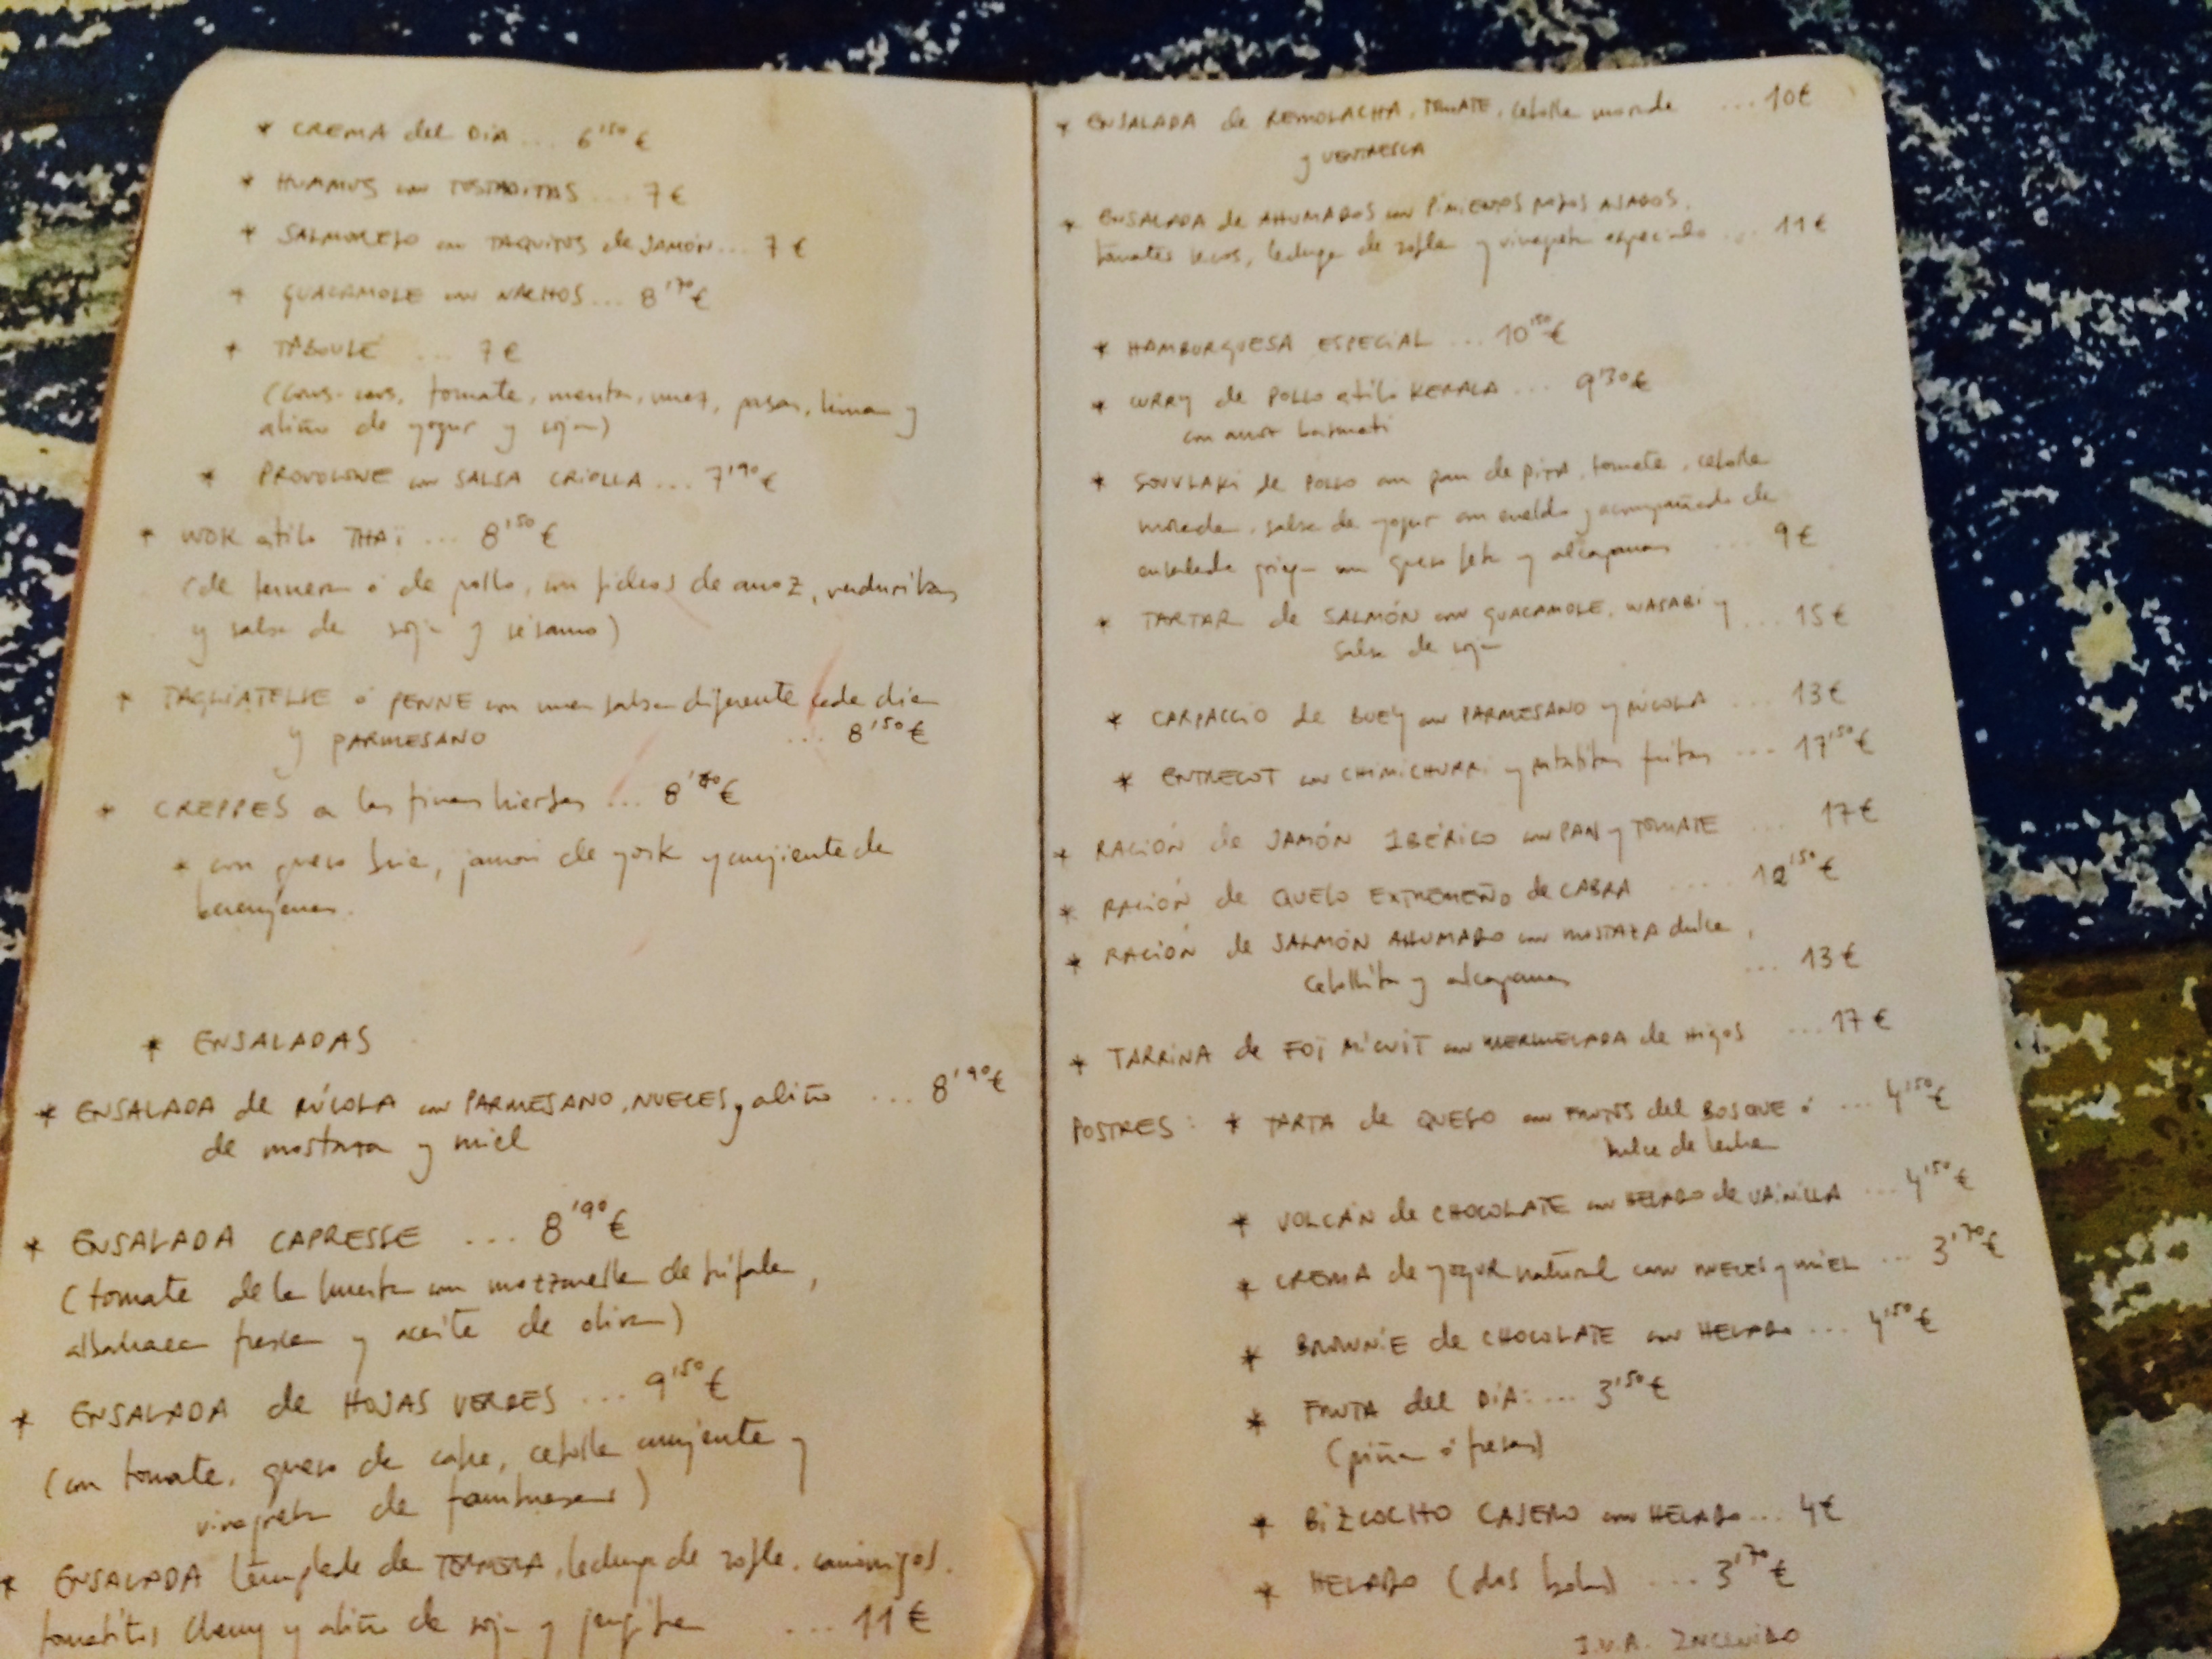 * CREMA del DÍA ... 6'50 €
* HUMMUS con TOSTADITAS ... 7 €
* SALMOREJO con TAQUITOS de JAMÓN ... 7 €
* GUACAMOLE con NACHOS ... 8'70 €
* TABOULÉ ... 7 €
(Cous-cous, tomate, menta, nuez, pasas, lima y
aliño de yogur y soja)
* PROVOLONE con SALSA CRIOLLA ... 7'90 €
* WOK estilo THAÏ ... 8'50 €
(de ternera ó de pollo, con fideos de arroz, verduritas
y salsa de soja y sésamo)
* TAGLIATELLE ó PENNE con una salsa diferente cada día
y PARMESANO ... 8'50 €
* CREPPES a las finas hierbas ... 8' €
* con queso brie, jamón de york y crujiente de
berenjenas.
* ENSALADAS
* ENSALADA de RÚCOLA con PARMESANO, NUECES y aliño ... 8'90 €
de mostaza y miel
* ENSALADA CAPRESSE ... 8'90 €
(tomate de la huerta con mozzarella de búfala,
albahaca fresca y aceite de oliva)
* ENSALADA de HOJAS VERDES ... 9'50 €
(con tomate, queso de cabra, cebolla crujiente y
vinagreta de frambuesa)
* ENSALADA templada de TERNERA, lechuga de roble, canónigos,
tomatitos cherry y aliño de soja y jengibre ... 11 €
* ENSALADA de REMOLACHA, TOMATE, cebolla morada ... 10 €
y VENTRESCA
* ENSALADA de AHUMADOS con PIMIENTOS ROJOS ASADOS,
tomates secos, lechuga de roble y vinagreta especiada ... 11 €
* HAMBURGUESA ESPECIAL ... 10'50 €
* CURRY de POLLO estilo KERALA ... 9'30 €
con arroz basmati
* SOUVLAKI de POLLO con pan de PITA, tomate, cebolla
morada, salsa de yogur con eneldo y acompañado de
ensalada griega con queso feta y alcaparras ... 9 €
* TARTAR de SALMÓN con GUACAMOLE, WASABI y ... 15 €
salsa de soja
* CARPACCIO de BUEY con PARMESANO y RÚCOLA ... 13 €
* ENTRECOT con CHIMICHURRI y patatitas fritas ... 17'50 €
* RACIÓN de JAMÓN IBÉRICO con PAN y TOMATE ... 17 €
* RACIÓN de QUESO EXTREMEÑO de CABRA ... 12'50 €
* RACIÓN de SALMÓN AHUMADO con MOSTAZA dulce,
cebollita y alcaparras ... 13 €
* TARRINA de FOÏ MICUIT con MERMELADA de HIGOS ... 17 €
POSTRES: * TARTA de QUESO con FRUTOS del BOSQUE ó ... 4'50 €
dulce de leche
* VOLCÁN de CHOCOLATE con HELADO de VAINILLA ... 4'50 €
* CREMA de yogur natural con NUECES y MIEL ... 3'70 €
* BROWNIE de CHOCOLATE con HELADO ... 4'50 €
* FRUTA del DÍA: ... 3'50 €
(piña ó fresas)
* BIZCOCHO CASERO con HELADO ... 4 €
* HELADO (dos bolas) ... 3'70 €
I.V.A. INCLUIDO